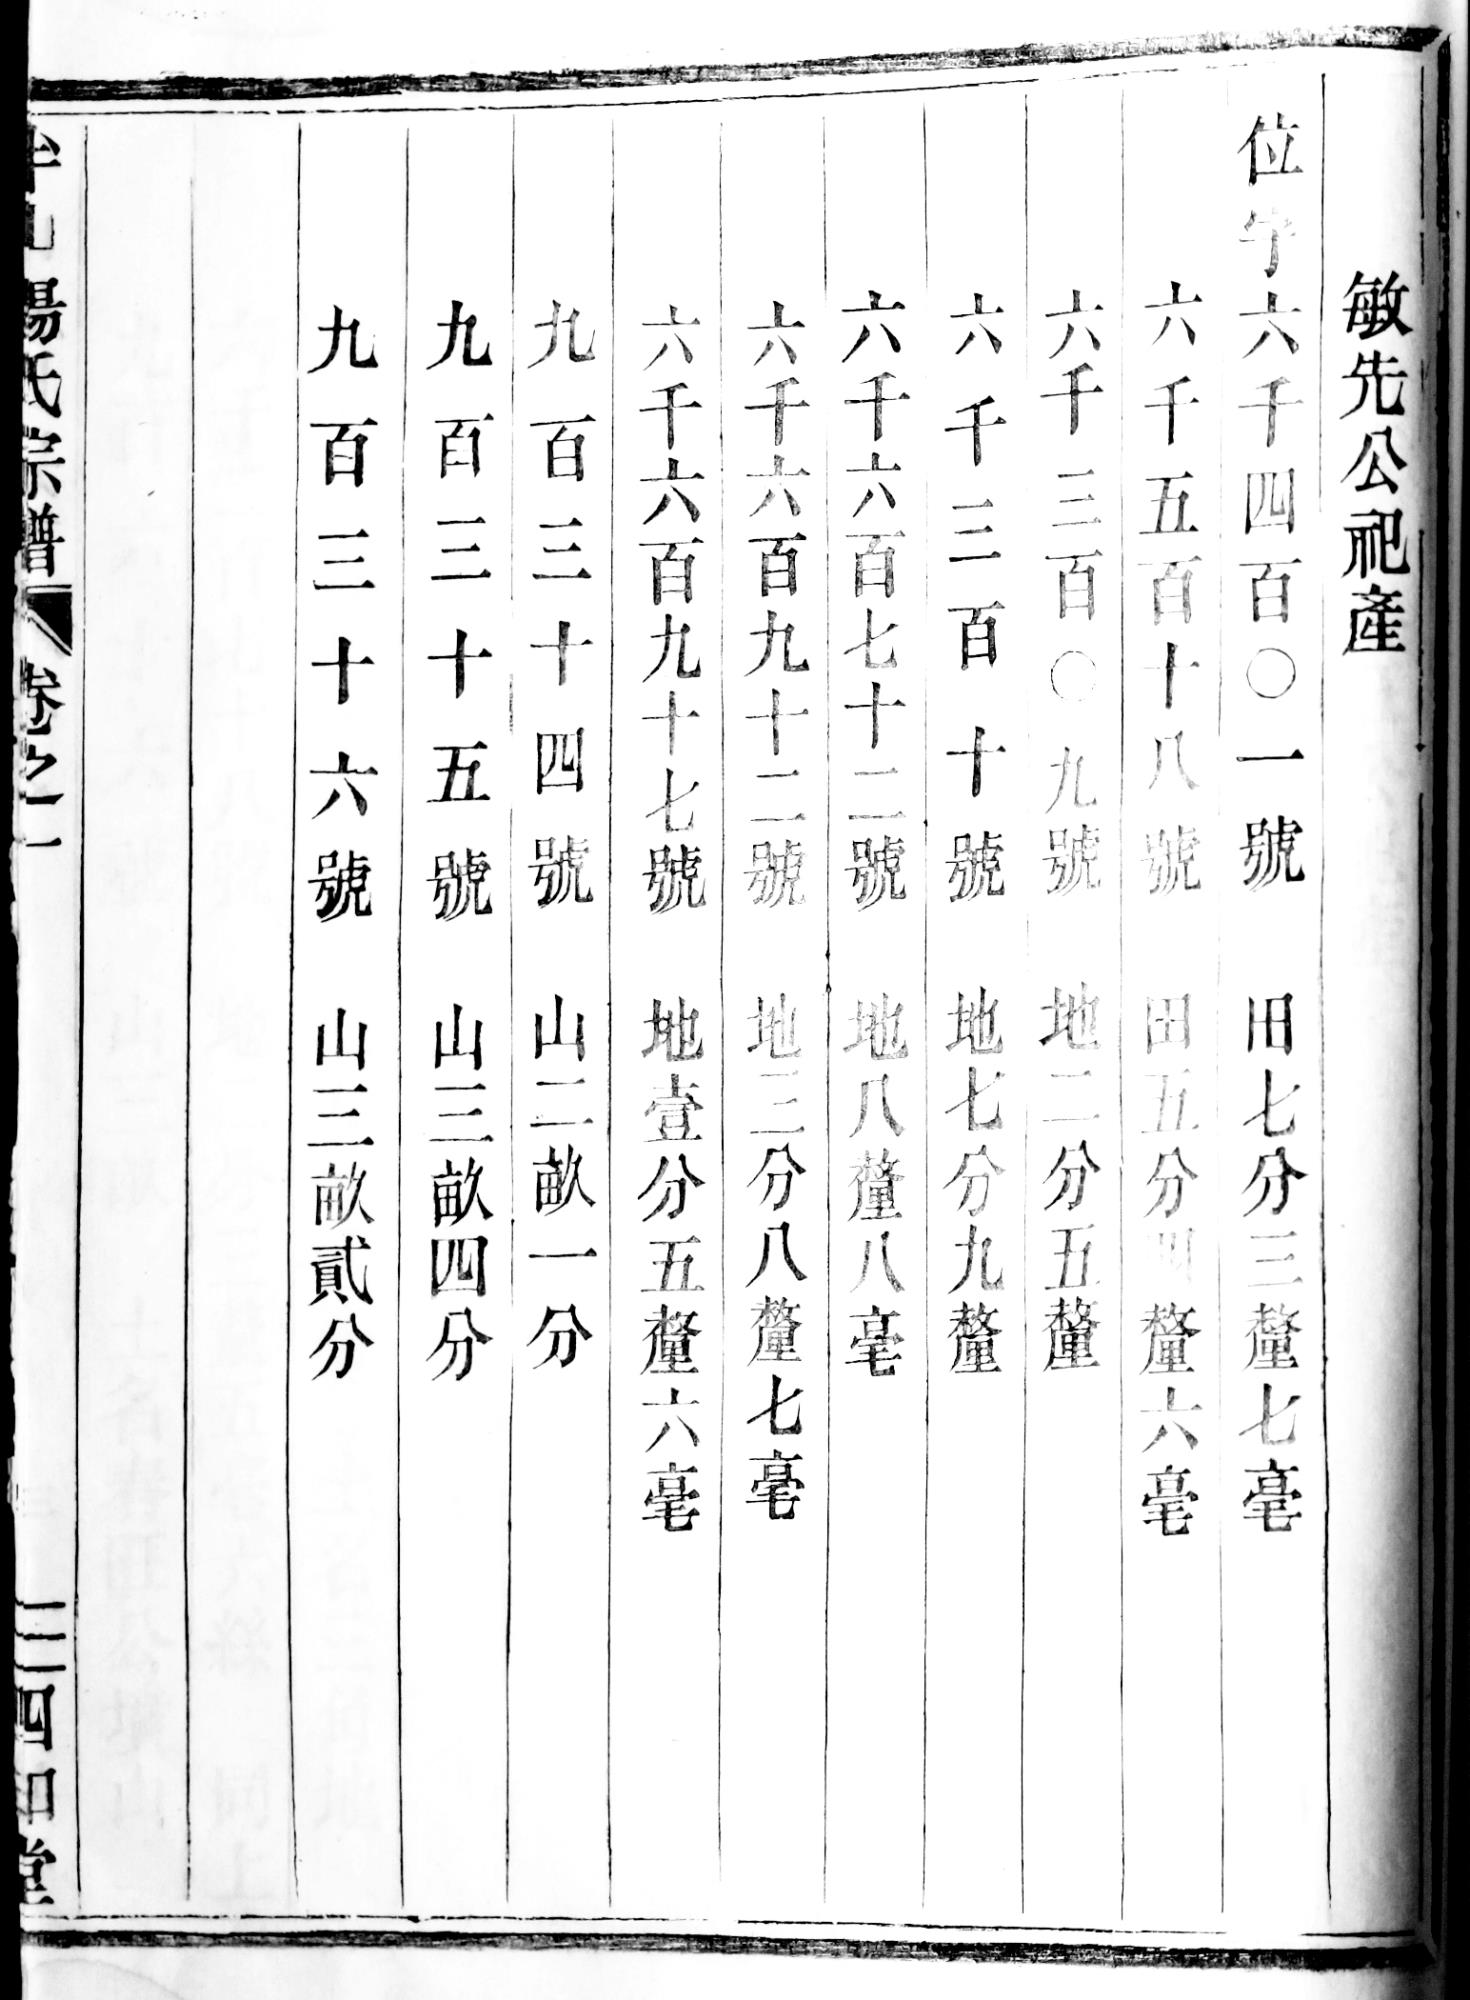 敏先公祀產
位字六千四百〇一號　田七分三釐七毫
六千五百十八號　田五分四釐六毫
六千三百〇九號　地二分五釐
六千三百十號　地七分九釐
六千六百七十二號　地八釐八毫
六千六百九十二號　地三分八釐七毫
六千六百九十七號　地壹分五釐六毫
九百三十四號　山二畝一分
九百三十五號　山三畝四分
九百三十六號　山三畝貳分
山陽氏宗譜　卷之一　三　四知堂